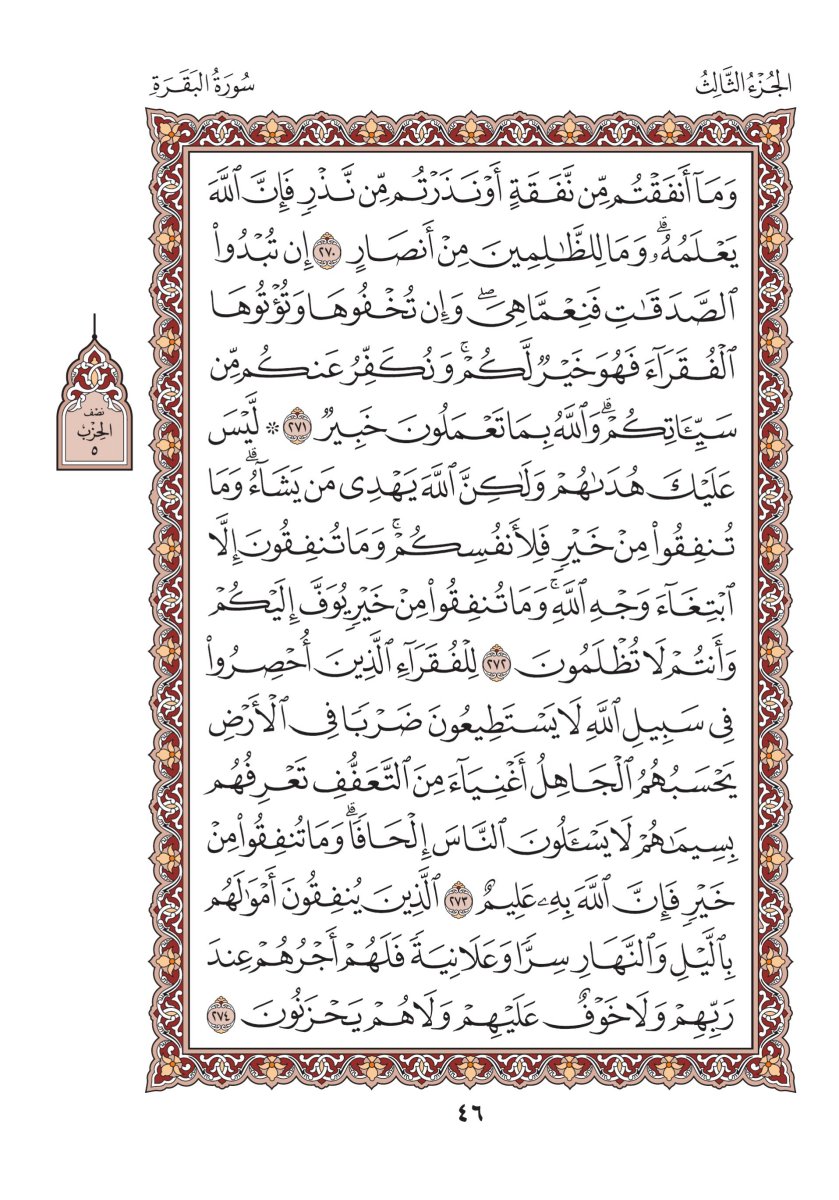 الجُزْءُ الثَّالِثُ
سُورَةُ البَقَرَةِ
وَمَآ أَنفَقۡتُم مِّن نَّفَقَةٍ أَوۡ نَذَرۡتُم مِّن نَّذۡرٖ فَإِنَّ ٱللَّهَ
يَعۡلَمُهُۥۗ وَمَا لِلظَّٰلِمِينَ مِنۡ أَنصَارٍ ٢٧٠ إِن تُبۡدُواْ
ٱلصَّدَقَٰتِ فَنِعِمَّا هِيَۖ وَإِن تُخۡفُوهَا وَتُؤۡتُوهَا
ٱلۡفُقَرَآءَ فَهُوَ خَيۡرٞ لَّكُمۡۚ وَنُكَفِّرُ عَنكُم مِّن
سَيِّـَٔاتِكُمۡۗ وَٱللَّهُ بِمَا تَعۡمَلُونَ خَبِيرٞ ٢٧١ * لَّيۡسَ
عَلَيۡكَ هُدَىٰهُمۡ وَلَٰكِنَّ ٱللَّهَ يَهۡدِي مَن يَشَآءُۗ وَمَا
تُنفِقُواْ مِنۡ خَيۡرٖ فَلِأَنفُسِكُمۡۚ وَمَا تُنفِقُونَ إِلَّا
ٱبۡتِغَآءَ وَجۡهِ ٱللَّهِۚ وَمَا تُنفِقُواْ مِنۡ خَيۡرٖ يُوَفَّ إِلَيۡكُمۡ
وَأَنتُمۡ لَا تُظۡلَمُونَ ٢٧٢ لِلۡفُقَرَآءِ ٱلَّذِينَ أُحۡصِرُواْ
فِي سَبِيلِ ٱللَّهِ لَا يَسۡتَطِيعُونَ ضَرۡبٗا فِي ٱلۡأَرۡضِ
يَحۡسَبُهُمُ ٱلۡجَاهِلُ أَغۡنِيَآءَ مِنَ ٱلتَّعَفُّفِ تَعۡرِفُهُم
بِسِيمَٰهُمۡ لَا يَسۡـَٔلُونَ ٱلنَّاسَ إِلۡحَافٗاۗ وَمَا تُنفِقُواْ مِنۡ
خَيۡرٖ فَإِنَّ ٱللَّهَ بِهِۦ عَلِيمٌ ٢٧٣ ٱلَّذِينَ يُنفِقُونَ أَمۡوَٰلَهُم
بِٱلَّيۡلِ وَٱلنَّهَارِ سِرّٗا وَعَلَانِيَةٗ فَلَهُمۡ أَجۡرُهُمۡ عِندَ
رَبِّهِمۡ وَلَا خَوۡفٌ عَلَيۡهِمۡ وَلَا هُمۡ يَحۡزَنُونَ ٢٧٤
نصف
الحِزْب
٥
٤٦